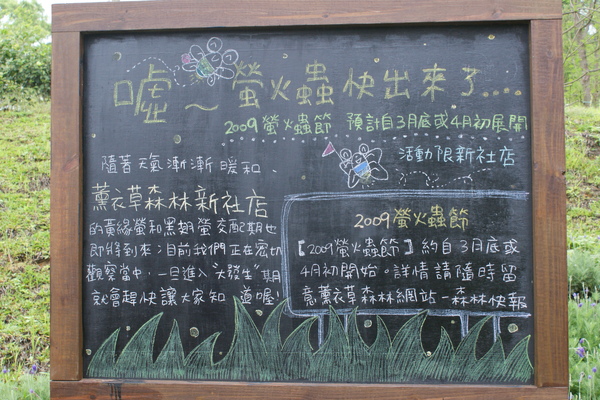 噓~螢火蟲快出來了....
2009螢火蟲節 預計自3月底或4月初展開
活動限新社店
隨著天氣漸漸暖和、
薰衣草森林新社店
的黃緣螢和黑翅螢交配期也
即將到來;目前我們正在密切
觀察當中,一旦進入"大發生"期
就會趕快讓大家知道喔!
2009螢火蟲節
【2009螢火蟲節】約自3月底或
4月初開始。詳情請隨時留
意薰衣草森林網站-森林快報